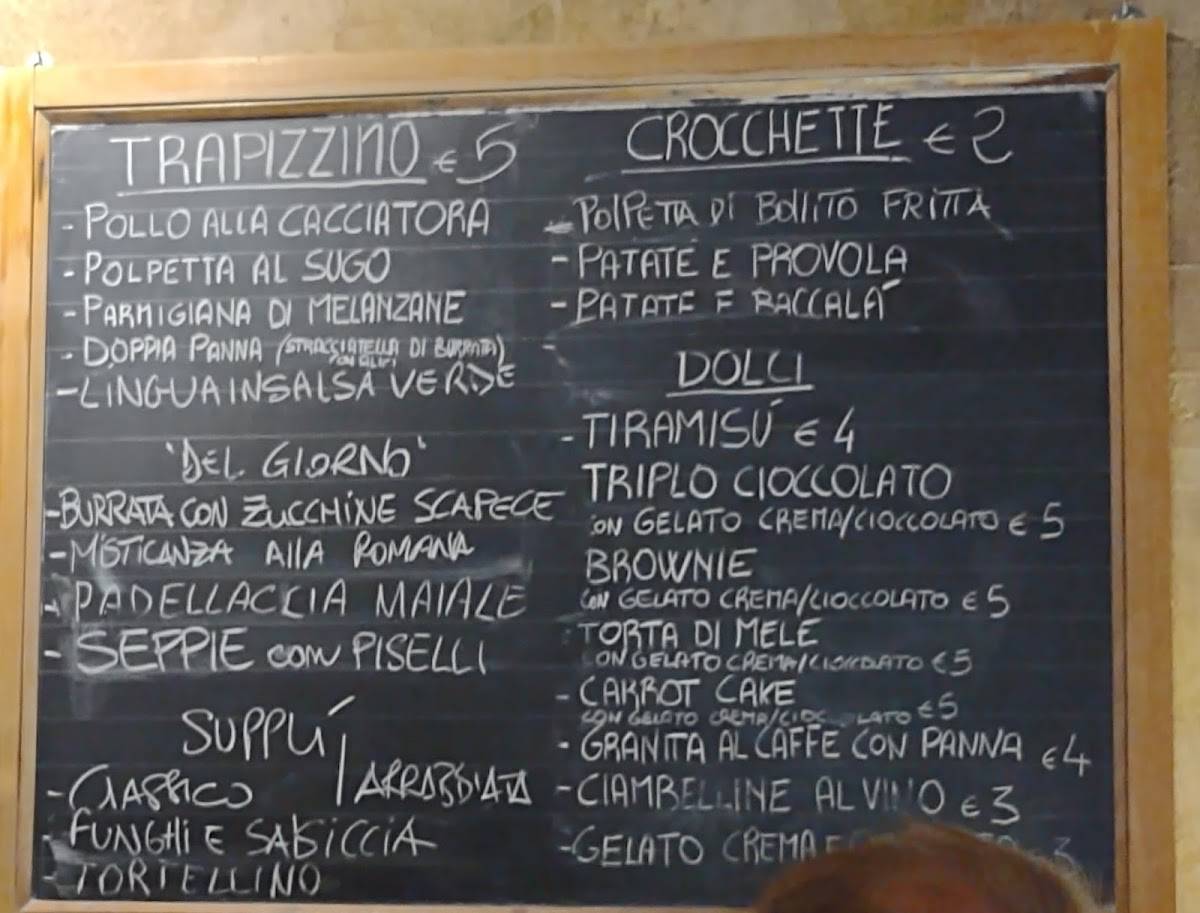 TRAPIZZINO € 5
- POLLO ALLA CACCIATORA
- POLPETTA AL SUGO
- PARMIGIANA DI MELANZANE
- DOPPIA PANNA (STRACCIATELLA DI BURRATA)
- LINGUA IN SALSA VERDE
'DEL GIORNO'
- BURRATA CON ZUCCHINE SCAPECE
- MISTICANZA ALLA ROMANA
- PADELLACCIA MAIALE
- SEPPIE con PISELLI
SUPPLÍ
- CLASSICO | ARRABBIATA
- FUNGHI E SALSICCIA
- TORTELLINO
CROCCHETTE € 2
- POLPETTA DI BOLLITO FRITTA
- PATATE E PROVOLA
- PATATE E BACCALÁ
-
DOLCI
- TIRAMISÚ € 4
TRIPLO CIOCCOLATO
CON GELATO CREMA/CIOCCOLATO € 5
BROWNIE
CON GELATO CREMA/CIOCCOLATO € 5
TORTA DI MELE
CON GELATO CREMA/CIOCCOLATO € 5
- CARROT CAKE
CON GELATO CREMA/CIOCCOLATO € 5
- GRANITA AL CAFFE CON PANNA € 4
- CIAMBELLINE AL VINO € 3
- GELATO CREMA E 3